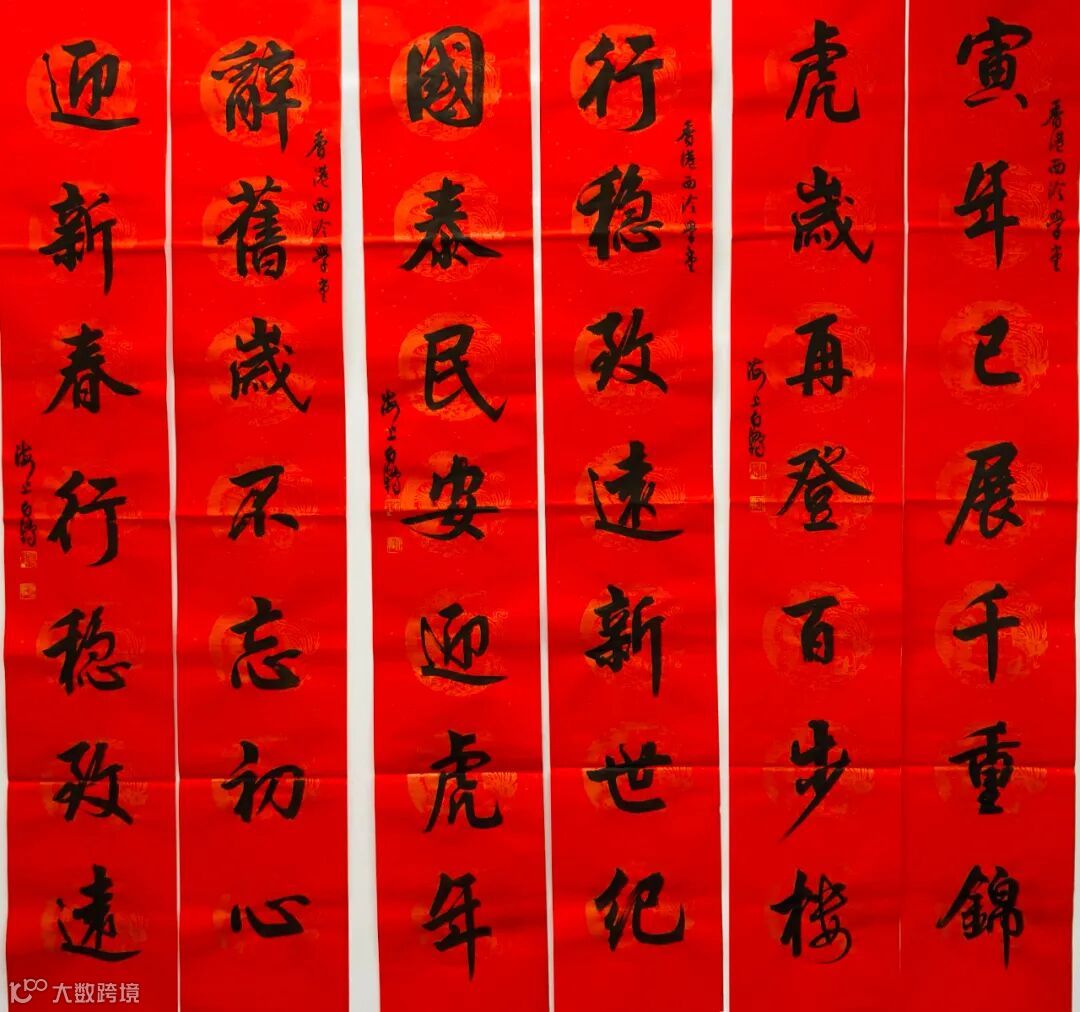 寅年已展千重錦
香港西泠學堂
虎歲再登百步樓
海上
行穩致遠新世紀
香港西泠學堂
國泰民安迎虎年
海上
辭舊歲不忘初心
香港西泠學堂
迎新春行穩致遠
海上
大数跨境